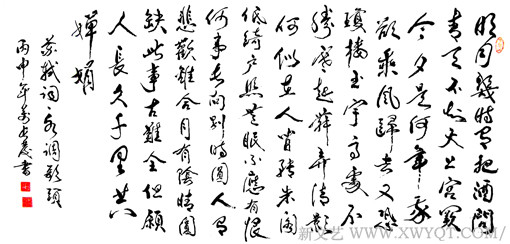 明月幾時有把酒問
青天不知天上宮闕
今夕是何年我
欲乘風歸去又恐
瓊樓玉宇高處不
勝寒起舞弄清影
何似在人間轉朱閣
低綺户照無眠不應有恨
何事長向别時圓人有
悲歡離合月有陰晴圓
缺此事古難全但願
人長久千里共
嬋娟
蘇軾詞水調歌頭
丙申年書
新文艺 WWW.XWYQT.COM/